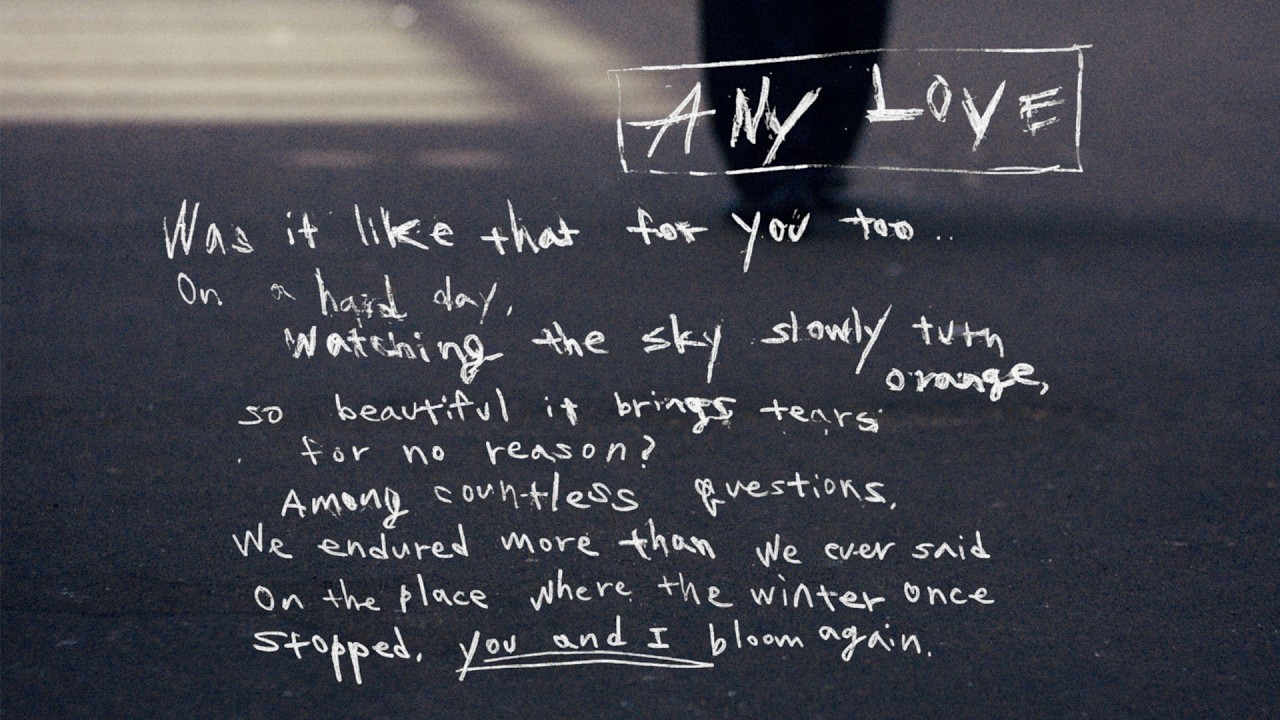 ANY LOVE
Was it like that for you too..
On a hard day,
Watching the sky slowly turn
orange,
so beautiful it brings tears
for no reason?
Among countless questions,
We endured more than we ever said
On the place where the winter once
stopped, you and I bloom again.